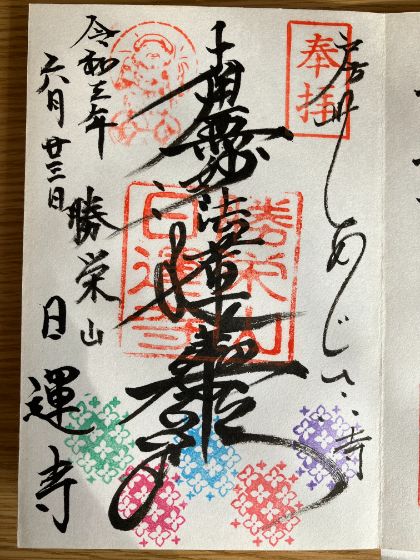 奉拝
房州 あじさい寺
南無妙法蓮華経
勝栄山
日運寺
令和三年
六月廿三日
勝栄山
日運寺